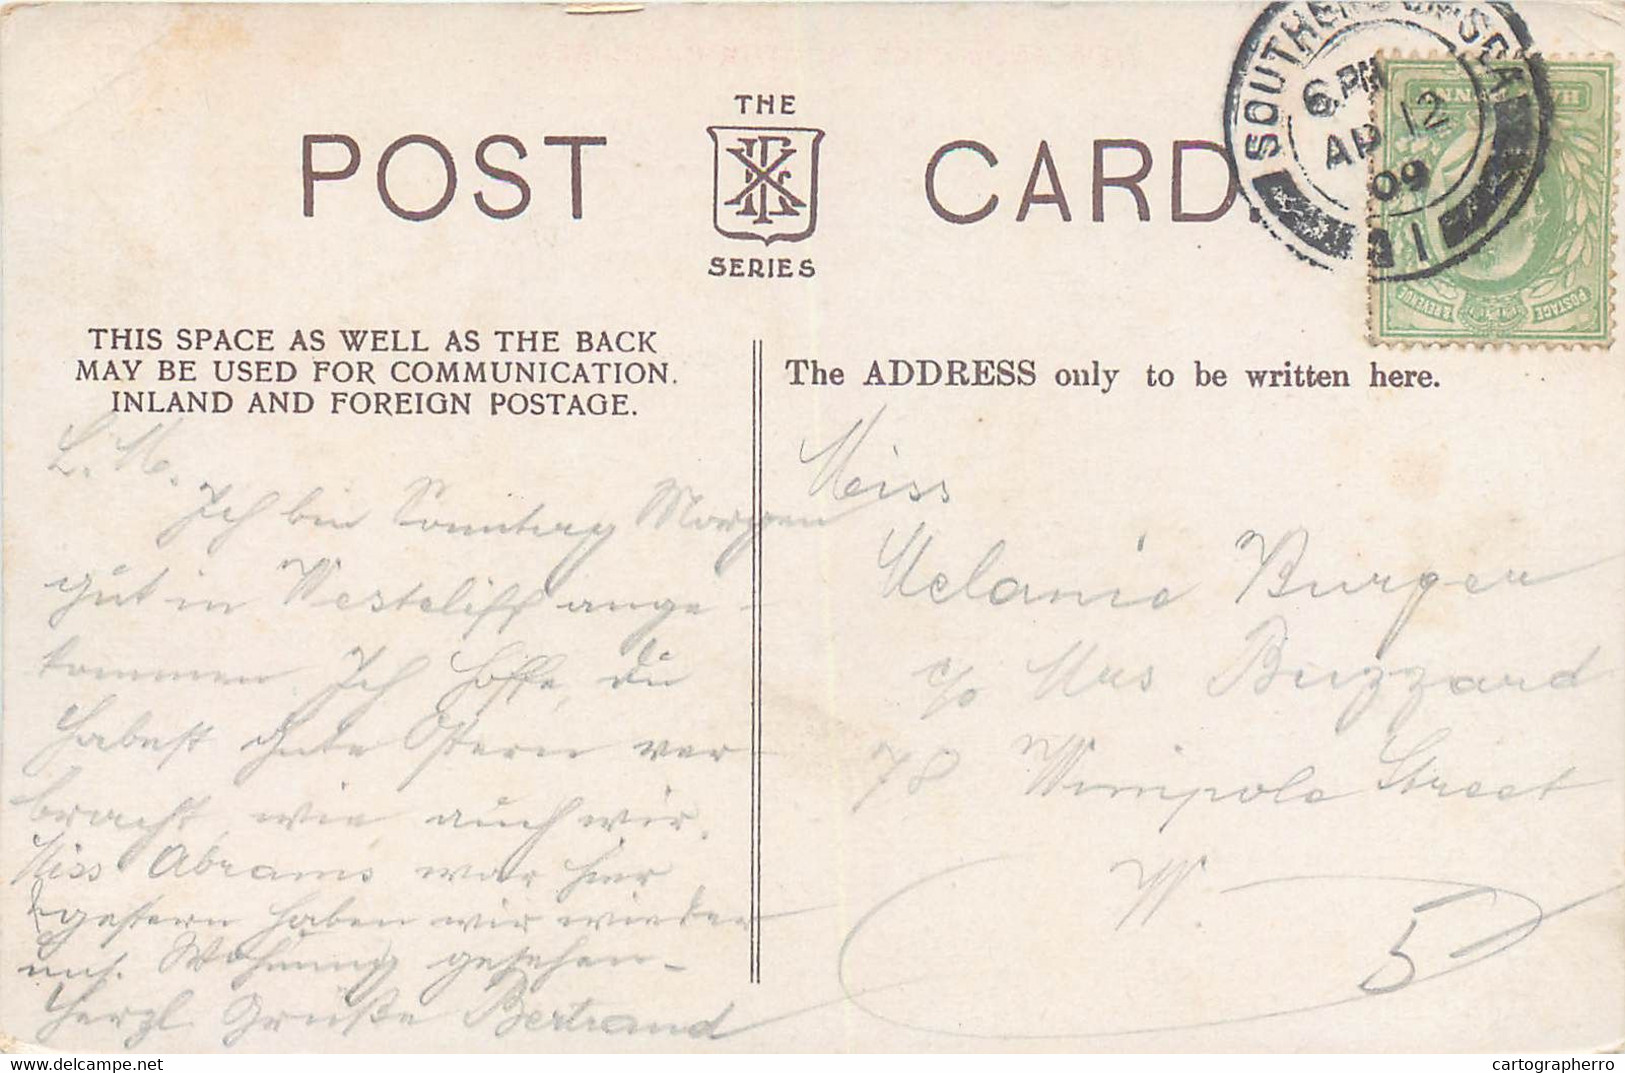 THE
POST CARD
SERIES
SOUTHEND-ON-SEA
6 PM
AP 12
09
1
POSTAGE & REVENUE
THIS SPACE AS WELL AS THE BACK
MAY BE USED FOR COMMUNICATION.
INLAND AND FOREIGN POSTAGE.
The ADDRESS only to be written here.
L. M.
Ich bin Sonntag Morgen
gut in Westcliff ange-
kommen. Ich hoffe, du
habest gute Ostern ver-
bracht, wie auch wir.
Miss Abrams war hier
& gestern haben wir wieder
uns. Wohnung gesehen-
Herzl. Grüße Bertrand
Miss
Melanie Burger
c/o Mrs Buzzard
78 Wimpole Street
W.
5
cartographerro